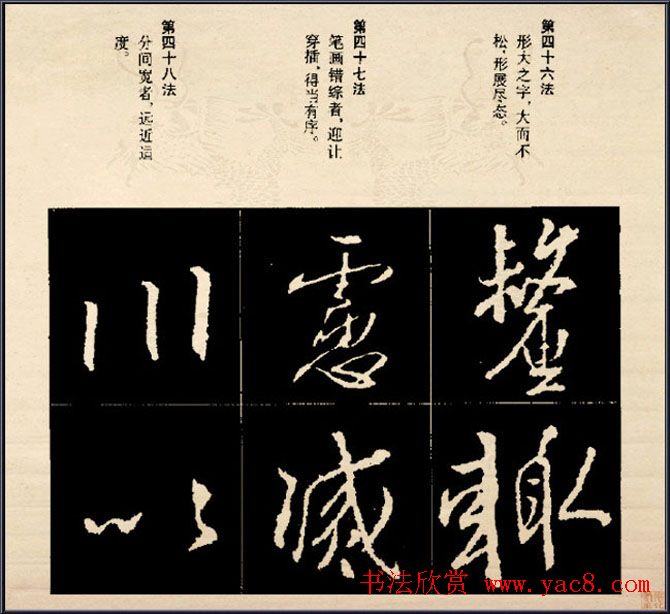 第四十六法
形大之字，大而不
松，形展尽态。
第四十七法
笔画错综者，迎让
穿插，得当有序。
第四十八法
分间宽者，远近适
度。
輒
滅
川
以
书法欣赏 www.yac8.com